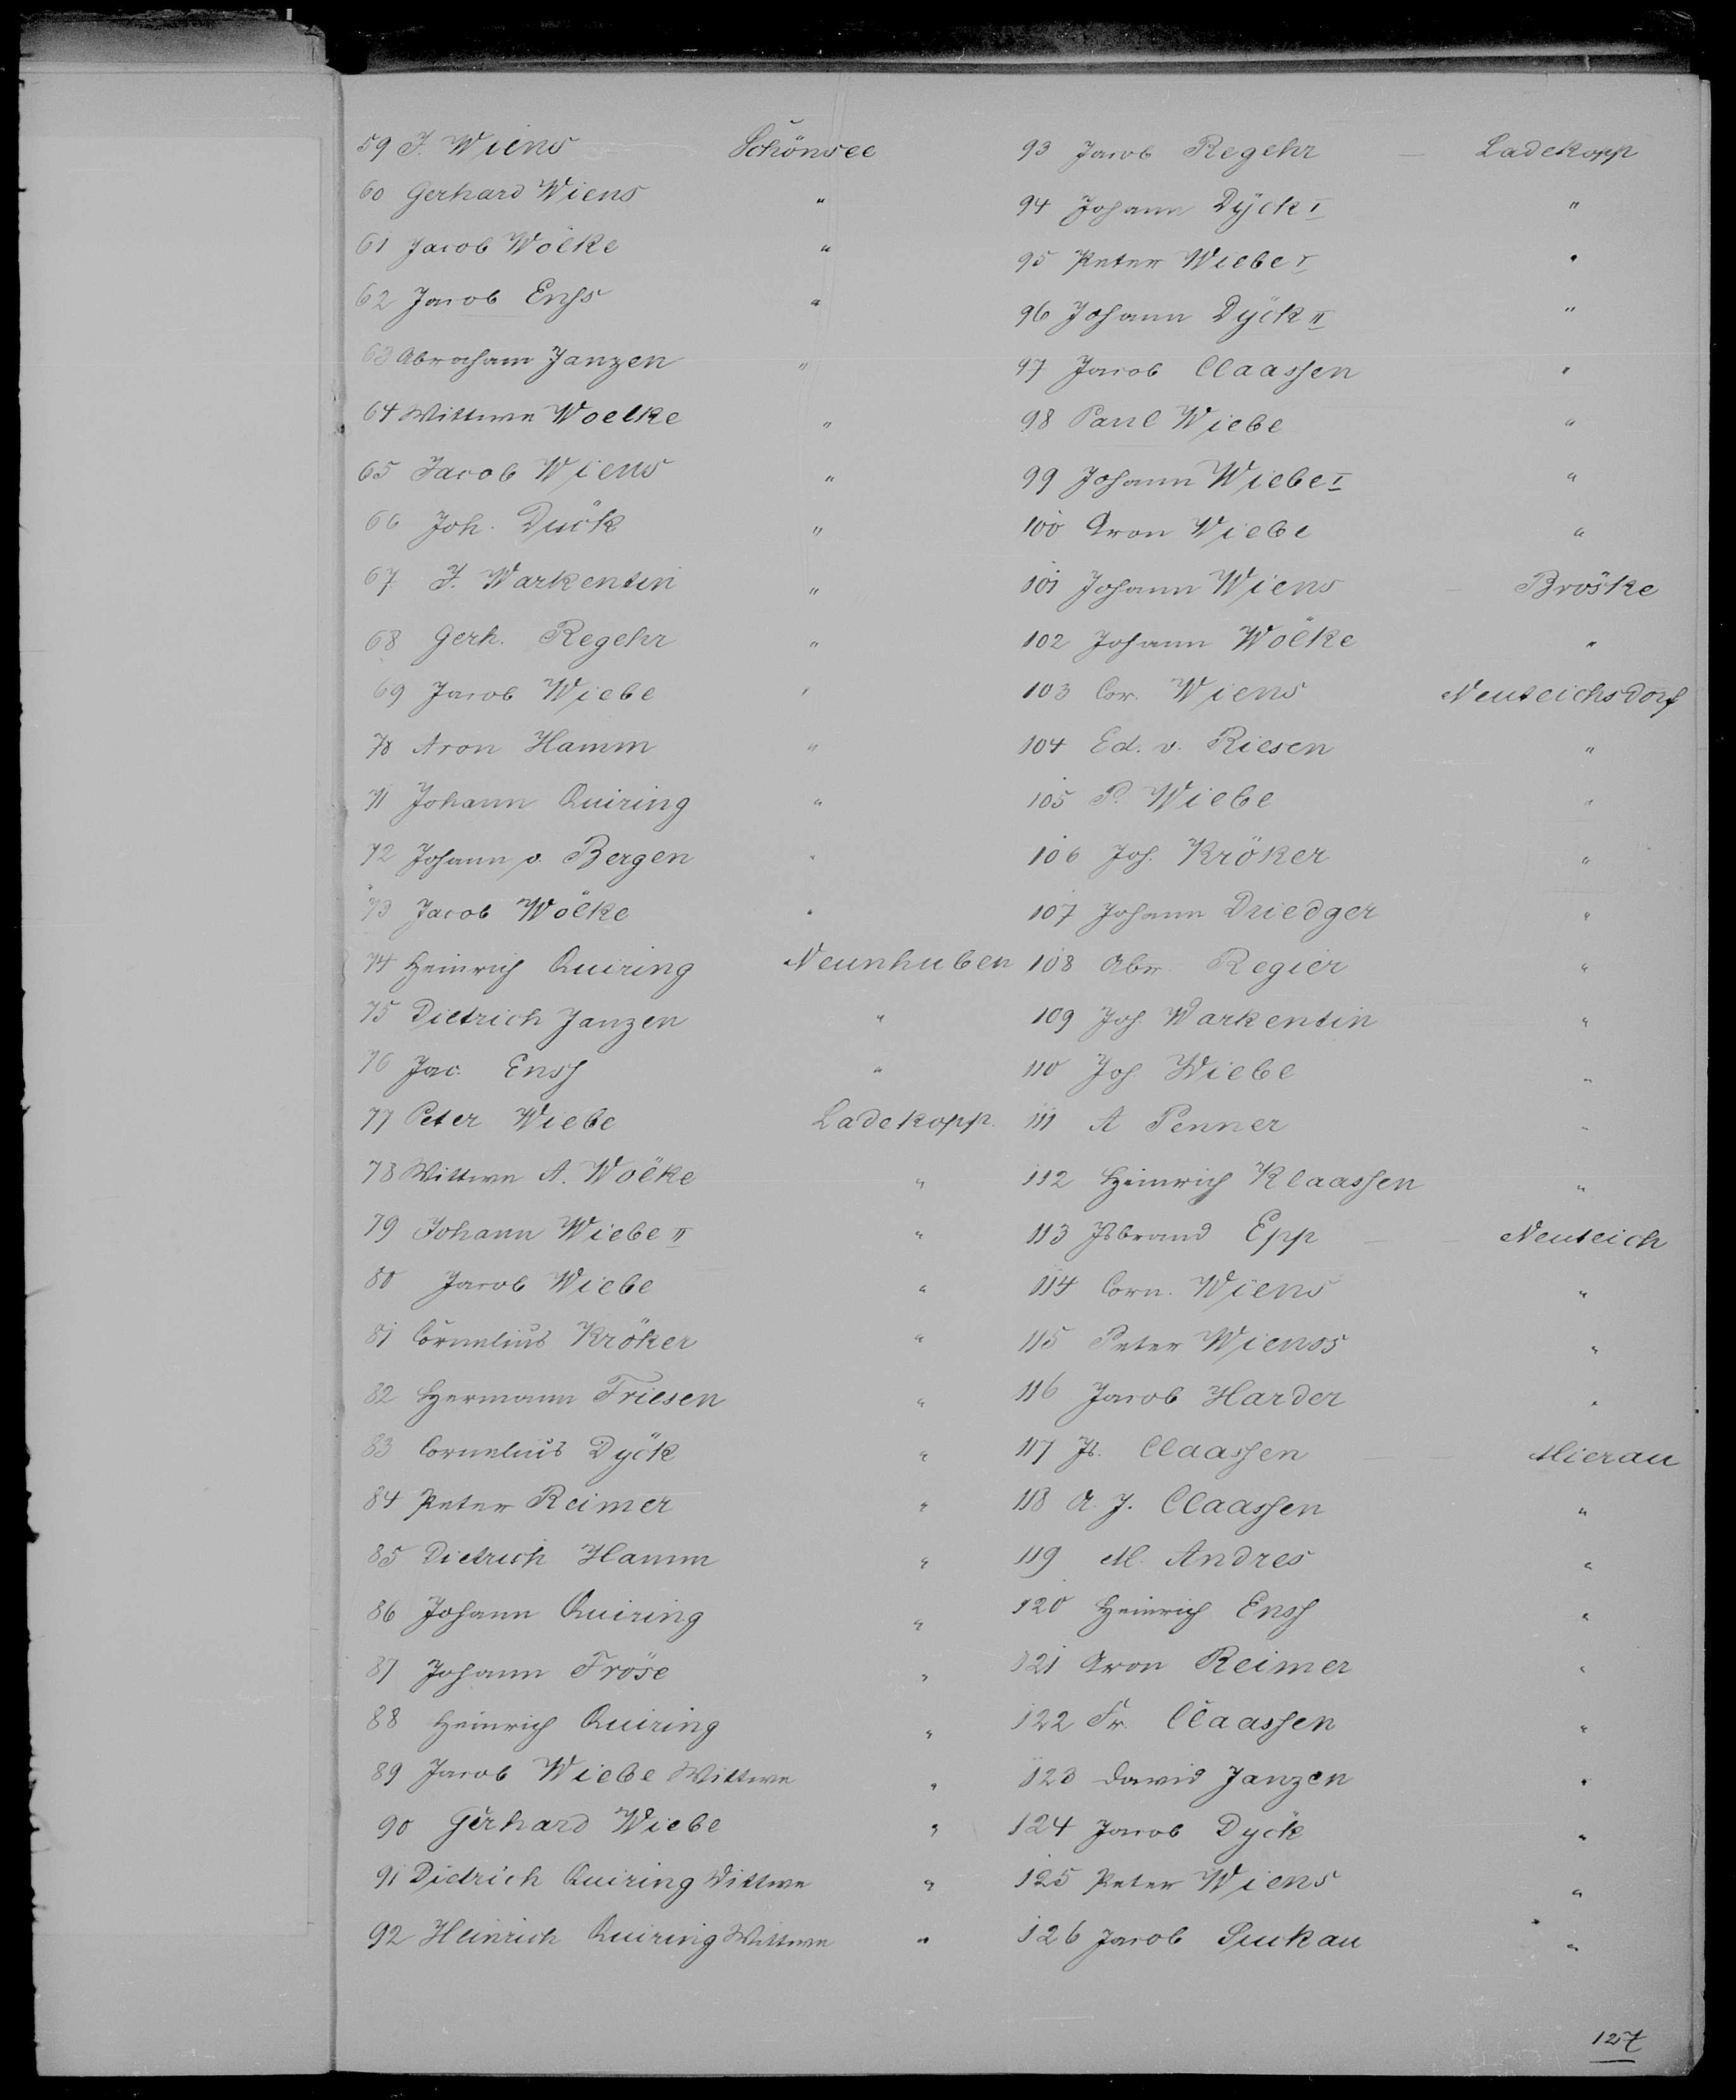 59 J. Wiens Schönsee
60 Gerhard Wiens "
61 Jacob Wölke "
62 Jacob Enss "
63 Abraham Janzen "
64 Wittwe Woelke "
65 Jacob Wiens "
66 Joh. Dück "
67 J. Warkentin "
68 Gerh. Regehr "
69 Jacob Wiebe "
70 Aron Hamm "
71 Johann Quiring "
72 Johann v. Bergen "
73 Jacob Wölke "
74 Heinrich Quiring Neunhuben
75 Dietrich Janzen "
76 Jac. Enss "
77 Peter Wiebe Ladekopp.
78 Wittwe A. Wölke "
79 Johann Wiebe II "
80 Jacob Wiebe "
81 Cornelius Kröker "
82 Hermann Friesen "
83 Cornelius Dyck "
84 Peter Reimer "
85 Dietrich Hamm "
86 Johann Quiring "
87 Johann Fröse "
88 Heinrich Quiring "
89 Jacob Wiebe Wittwe "
90 Gerhard Wiebe "
91 Dietrich Quiring Wittwe "
92 Heinrich Quiring Wittwe "
93 Jacob Regehr — Ladekopp
94 Johann Dyck I "
95 Peter Wiebe I "
96 Johann Dyck II "
97 Jacob Claassen "
98 Paul Wiebe "
99 Johann Wiebe I "
100 Aron Wiebe "
101 Johann Wiens — Bröske
102 Johann Wölke "
103 Cor. Wiens Neuteichsdorf
104 Ed. v. Riesen "
105 P. Wiebe "
106 Joh. Kröker "
107 Johann Driedger "
108 Abr. Regier "
109 Joh. Warkentin "
110 Joh. Wiebe "
111 A Penner "
112 Heinrich Klaassen "
113 Isbrand Epp — Neuteich
114 Corn. Wiens "
115 Peter Wienss "
116 Jacob Harder "
117 Is. Claassen — Mierau
118 A. J. Claassen "
119 M. Andres "
120 Heinrich Enss "
121 Aron Reimer "
122 Fr. Claassen "
123 David Janzen "
124 Jacob Dyck "
125 Peter Wiens "
126 Jacob Sukau "
127